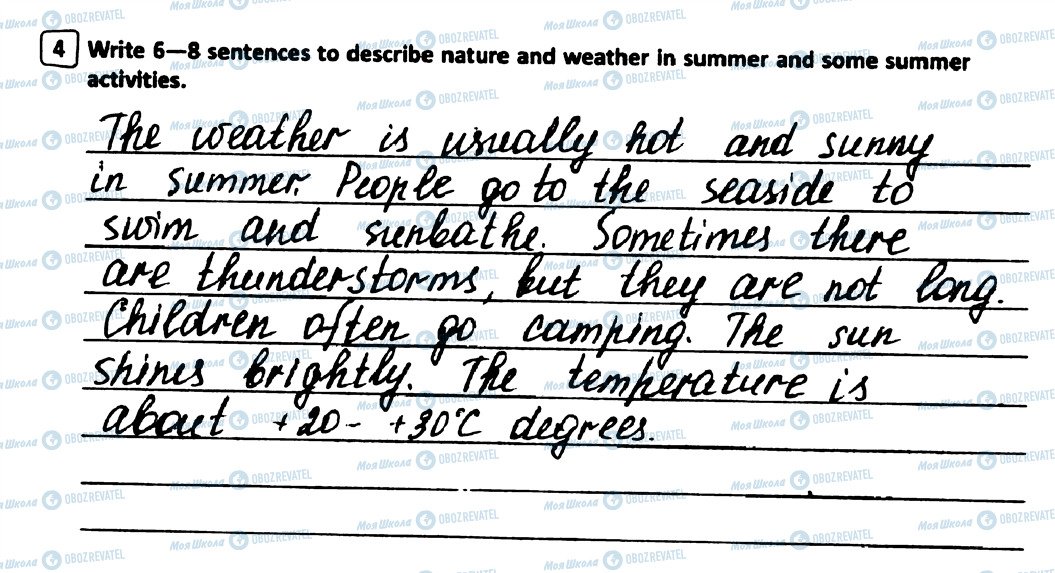 4 Write 6—8 sentences to describe nature and weather in summer and some summer
activities.
The weather is usually hot and sunny
in summer. People go to the seaside to
swim and sunbathe. Sometimes there
are thunderstorms, but they are not long.
Children often go camping. The sun
shines brightly. The temperature is
about +20- +30°C degrees.
Моя Школа OBOZREVATEL